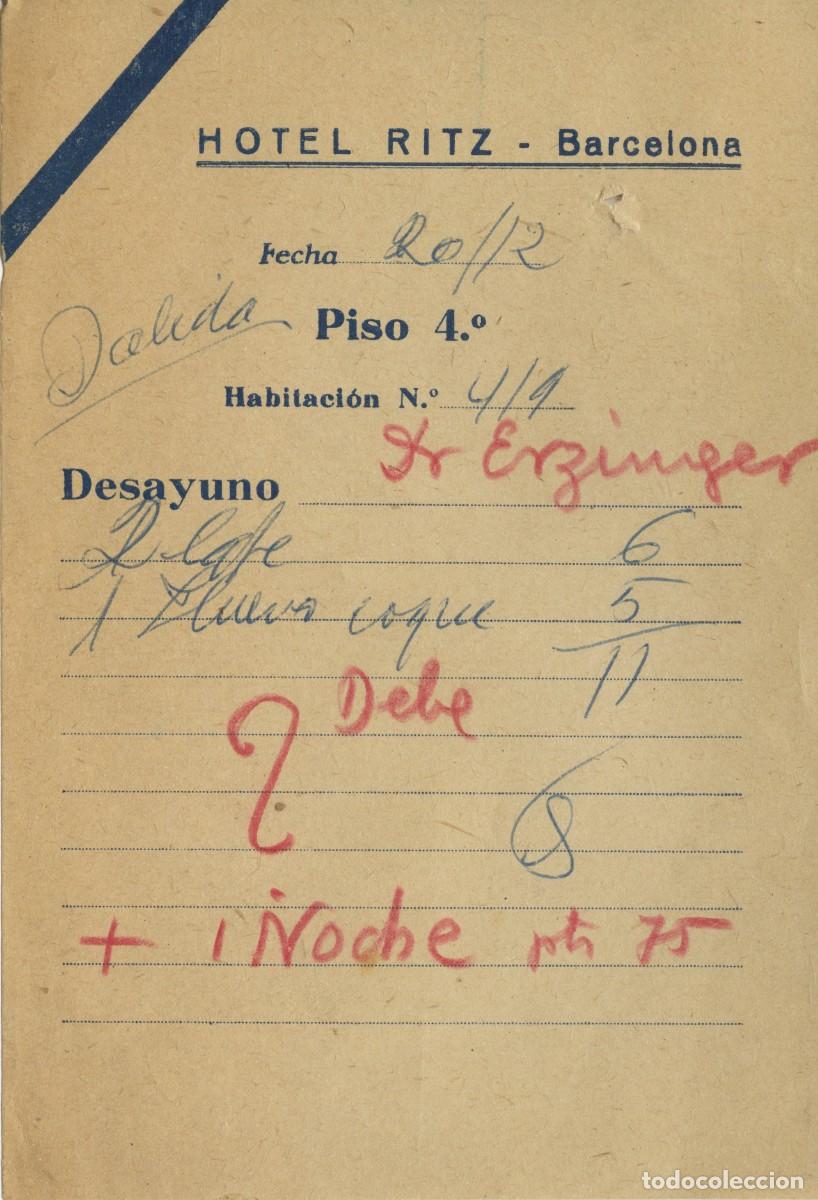 HOTEL RITZ - Barcelona
Fecha 20/12
Salida
Piso 4.º
Habitación N.º 419
Dr Erzinger
Desayuno
2 Cafe 6
1 Huevo coque 5
11
Debe
+ 1 Noche pts 75
todocoleccion